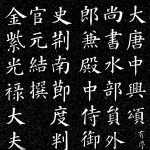 大唐中興頌有序
尚書水部員外
郎兼殿中侍御
史荆南節度判
官元結撰
金紫光祿大夫